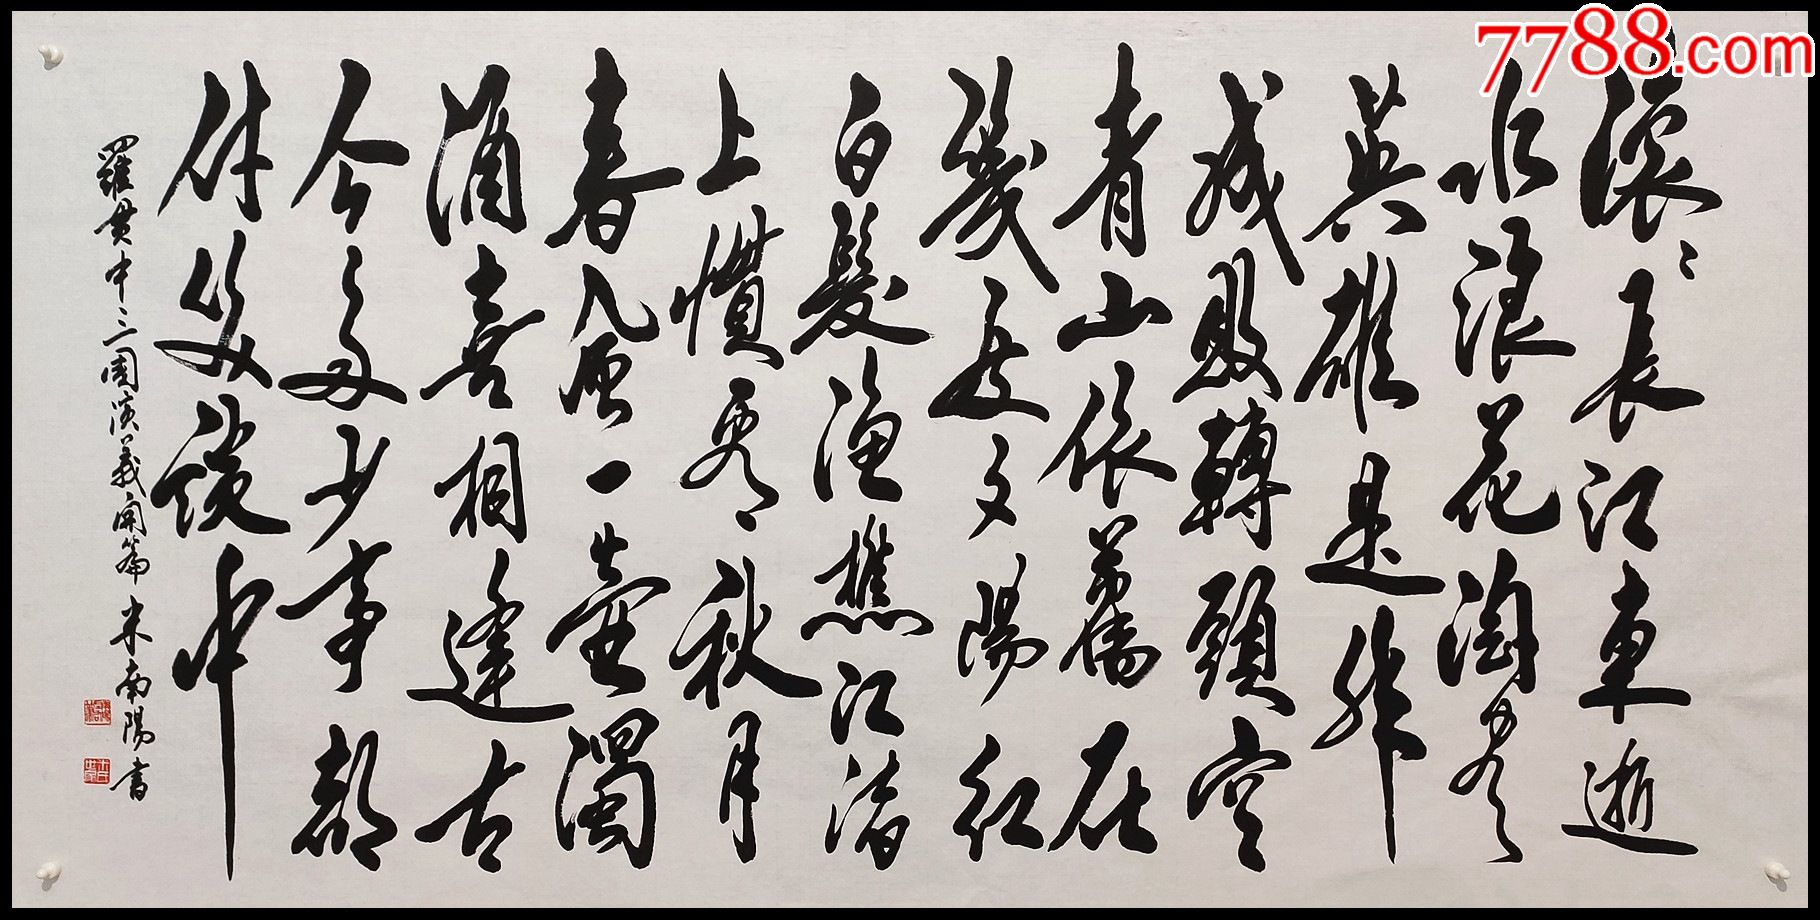 7788.com
滚〻長江東逝
水浪花淘盡
英雄是非
成敗轉頭空
青山依舊在
幾度夕陽紅
白髮漁樵江渚
上慣看秋月
春風一壺濁
酒喜相逢古
今多少事都
付笑談中
羅貫中三國演義開篇 米南陽書